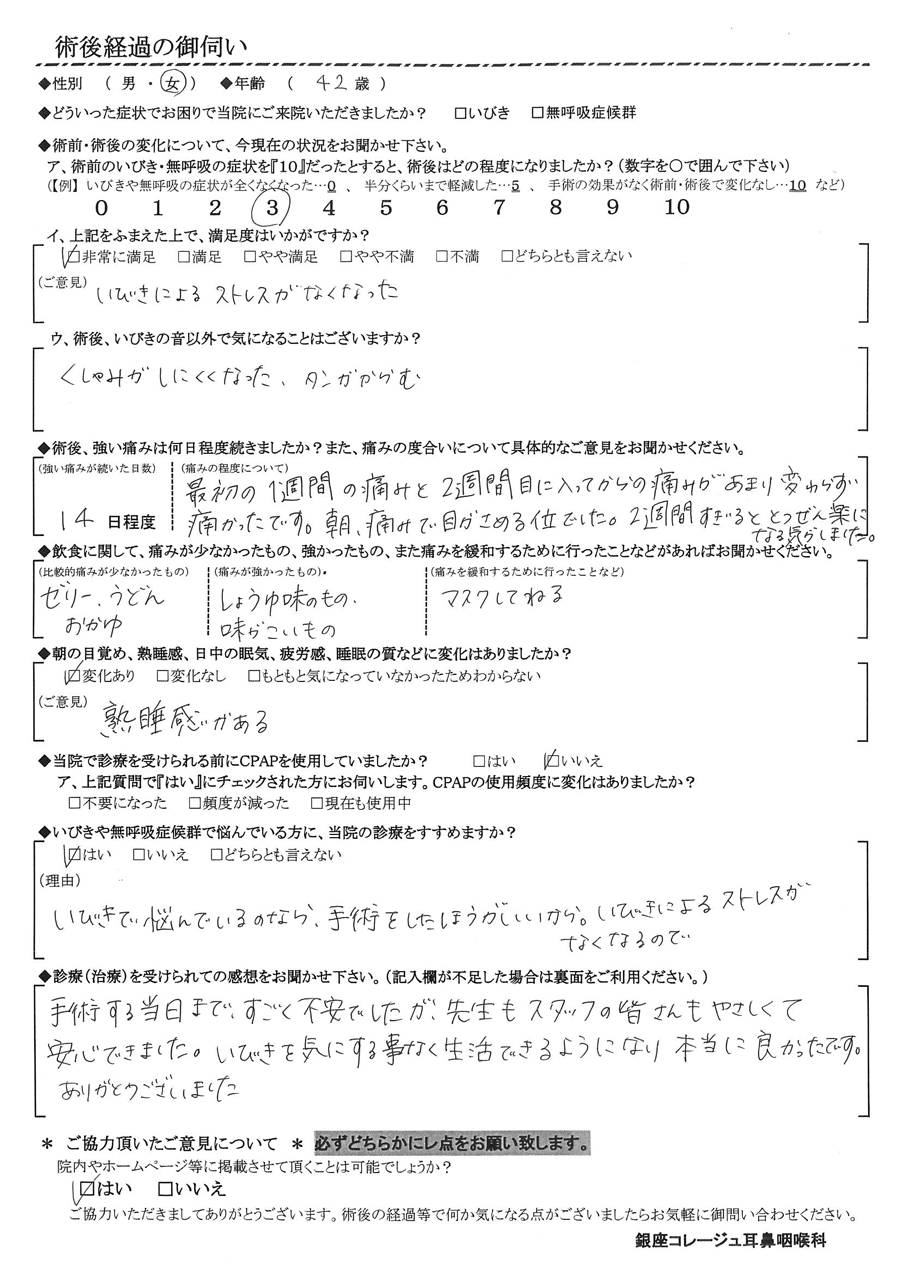 術後経過の御伺い
◆性別 ( 男 ・ 女 ) ◆年齢 ( 42 歳 )
◆どういった症状でお困りで当院にご来院いただきましたか? □いびき □無呼吸症候群
◆術前・術後の変化について、今現在の状況をお聞かせ下さい。
ア、術前のいびき・無呼吸の症状を『10』だったとすると、術後はどの程度になりましたか?(数字を〇で囲んで下さい)
(【例】 いびきや無呼吸の症状が全くなくなった…0 、 半分くらいまで軽減した…5 、 手術の効果がなく術前・術後で変化なし…10 など)
0 1 2 3 4 5 6 7 8 9 10
イ、上記をふまえた上で、満足度はいかがですか?
☑非常に満足 □満足 □やや満足 □やや不満 □不満 □どちらとも言えない
(ご意見) いびきによる ストレスがなくなった
ウ、術後、いびきの音以外で気になることはございますか?
くしゃみが しにくくなった、 タンがからむ
◆術後、強い痛みは何日程度続きましたか?また、痛みの度合いについて具体的なご意見をお聞かせください。
(強い痛みが続いた日数) (痛みの程度について)
最初の 1週間 の痛みと 2週間目に入ってからの痛みがあまり変わらず
14 日程度 痛かったです。朝、痛みで目がさめる位でした。2週間すぎるととつぜん楽に
なる気がしました。
◆飲食に関して、痛みが少なかったもの、強かったもの、また痛みを緩和するために行ったことなどがあればお聞かせください。
(比較的痛みが少なかったもの) (痛みが強かったもの)・ (痛みを緩和するために行ったことなど)
ゼリー、うどん しょうゆ味のもの、 マスクしてねる
おかゆ 味がこいもの
◆朝の目覚め、熟睡感、日中の眠気、疲労感、睡眠の質などに変化はありましたか?
☑変化あり □変化なし □もともと気になっていなかったためわからない
(ご意見) 熟睡感がある
◆当院で診療を受けられる前にCPAPを使用していましたか? □はい ☑いいえ
ア、上記質問で『はい』にチェックされた方にお伺いします。CPAPの使用頻度に変化はありましたか?
□不要になった □頻度が減った □現在も使用中
◆いびきや無呼吸症候群で悩んでいる方に、当院の診療をすすめますか?
☑はい □いいえ □どちらとも言えない
(理由)
いびきで悩んでいるのなら、手術をしたほうがいいから。いびきによるストレスが
なくなるので
◆診療(治療)を受けられての感想をお聞かせ下さい。(記入欄が不足した場合は裏面をご利用ください。)
手術する当日まで、すごく不安でしたが、先生もスタッフの皆さんもやさしくて
安心できました。いびきを気にする事なく生活できるようになり 本当に良かったです。
ありがとうございました
＊ ご協力頂いたご意見について ＊ 必ずどちらかにレ点をお願い致します。
院内やホームページ等に掲載させて頂くことは可能でしょうか?
☑はい □いいえ
ご協力いただきましてありがとうございます。術後の経過等で何か気になる点がございましたらお気軽に御問い合わせください。
銀座コレージュ耳鼻咽喉科